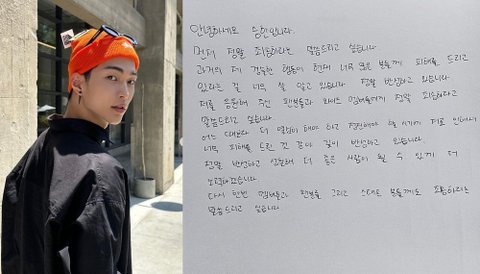 안녕하세요 승한입니다.
먼저 정말 죄송하다는 말씀드리고 싶습니다.
과거의 제 경솔한 행동이 현재 너무 많은 분들께 피해를 드리고
있다는 걸 너무 잘 알고 있습니다 정말 반성하고 있습니다
저를 응원해 주신 팬분들과 라이즈 멤버들에게 정말 죄송하다고
말씀드리고 싶습니다.
어느 때보다 더 열심히 해야 하고 집중해야 할 시기에 저로 인해서
너무 피해를 드린 것 같아 깊이 반성하고 있습니다.
정말 반성하고 성찰해 더 좋은 사람이 될 수 있게 더
노력하겠습니다.
다시 한번 멤버들과 팬분들 그리고 스태프 분들께도 죄송하다는
말씀드리고 싶습니다.